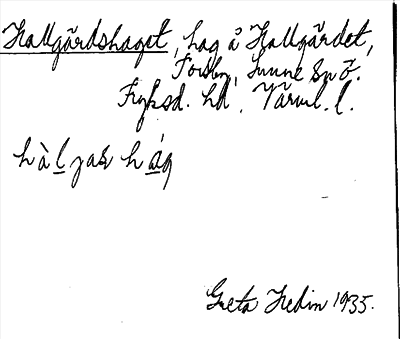 Hallgårdshaget, hag å Hallgårdet,
Forsbn, Sunne sn ö.
Fryksd. hd. Värml. l.
hàl̲jas há̲g
Greta Hedin 1935.